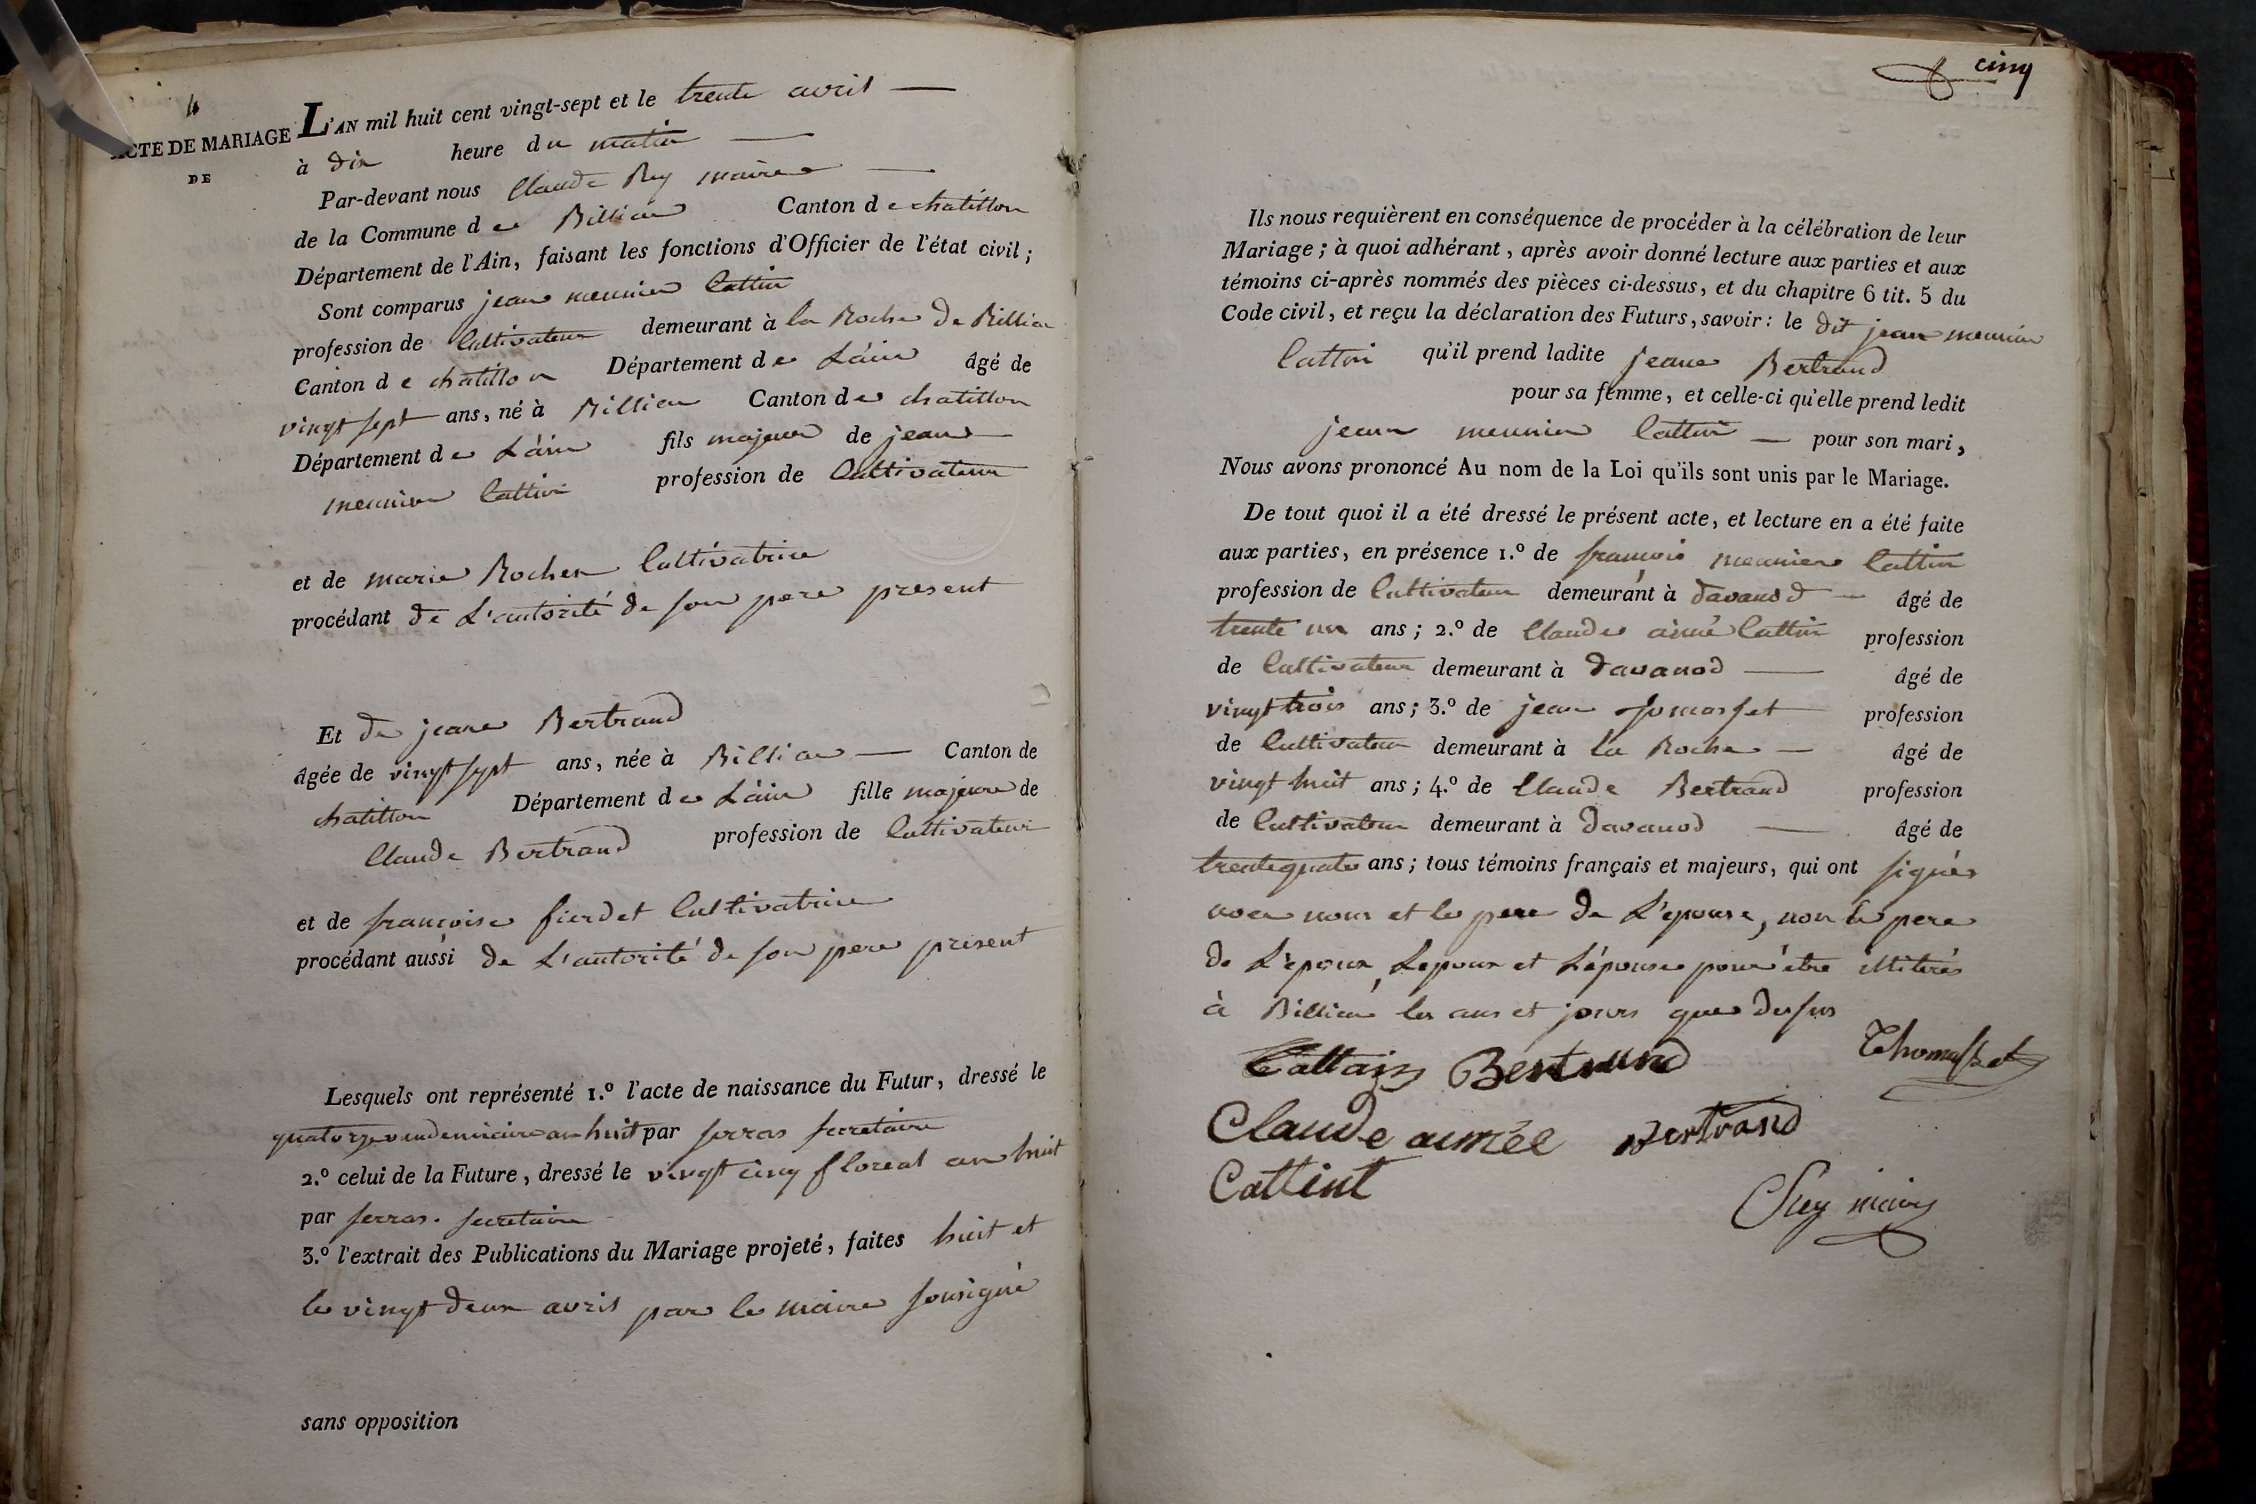 4
ACTE DE MARIAGE
DE
L'AN mil huit cent vingt-sept et le trente avril —
à dix heure du matin —
Par-devant nous Claude Rey maire —
de la Commune de Billiau Canton de chatillon
Département de l'Ain, faisant les fonctions d'Officier de l'état civil;
Sont comparus jean meunier Cattin
profession de Cultivateur demeurant à la Roche de Billiau
Canton de chatillon Département de L'ain âgé de
vingt sept ans, né à Billiau Canton de chatillon
Département de L'ain fils majeur de jean —
meunier Cattin profession de Cultivateur
et de marie Rocher Cultivatrice
procédant de L'autorité de son pere present
Et de jeane Bertrand
âgée de vingt sept ans, née à Billiau — Canton de
chatillon Département de L'ain fille majeure de
Claude Bertrand profession de Cultivateur
et de françoise fierdet Cultivatrice
procédant aussi de L'autorité de son pere présent
Lesquels ont représenté 1.º l'acte de naissance du Futur, dressé le
quatorze vendemiaire an huit par serras secretaire
2.º celui de la Future, dressé le vingt cinq floreal an huit
par serras. secretaire
3.º l'extrait des Publications du Mariage projeté, faites huit et
le vingt deux avril par le maire sousigné
sans opposition
cinq
Ils nous requièrent en conséquence de procéder à la célébration de leur
Mariage; à quoi adhérant, après avoir donné lecture aux parties et aux
témoins ci-après nommés des pièces ci-dessus, et du chapitre 6 tit. 5 du
Code civil, et reçu la déclaration des Futurs, savoir: le dit jean meunier
Cattin qu'il prend ladite jeane Bertrand
pour sa femme, et celle-ci qu'elle prend ledit
jean meunier Cattin — pour son mari,
Nous avons prononcé Au nom de la Loi qu'ils sont unis par le Mariage.
De tout quoi il a été dressé le présent acte, et lecture en a été faite
aux parties, en présence 1.º de françois meunier Cattin
profession de Cultivateur demeurant à davanod — âgé de
trente un ans; 2.º de Claude aimé Cattin profession
de Cultivateur demeurant à davanod — âgé de
vingt trois ans; 3.º de jean profession
de Cultivateur demeurant à La Roche — âgé de
vingt huit ans; 4.º de Claude Bertrand profession
de Cultivateur demeurant à davanod — âgé de
trentequatre ans; tous témoins français et majeurs, qui ont signés
avec nous et le pere de L'epouse, non le pere
de L'epoux, Lepoux et L'épouse pour être illitérés
à Billiau les ans et jours que dessus
Cattain Bertrand Thomasset
Claude aimée Bertrand
Cattint
Rey maire